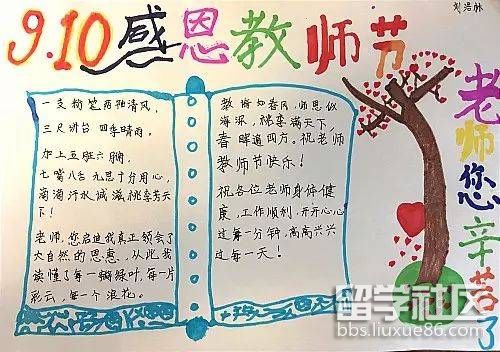 9.10感恩教师节
刘浩林
一支粉笔两袖清风,
三尺讲台 四季晴雨,
加上五脏六腑,
七嘴八舌 九思十分用心,
滴滴汗水 诚滋桃李芳天
下!
老师,您启迪我真正领会了
大自然的恩惠,从此我
读懂了每一瓣绿叶,每一片
彩云,每一个浪花。
教诲如春风,师恩似
海深,桃李满天下,
春晖遍四方。祝老师
教师节快乐!
祝各位老师身体健
康,工作顺利,开开心心
过每一分钟,高高兴兴
过每一天!
老师您辛苦了
留学社区
bbs.liuxue86.com